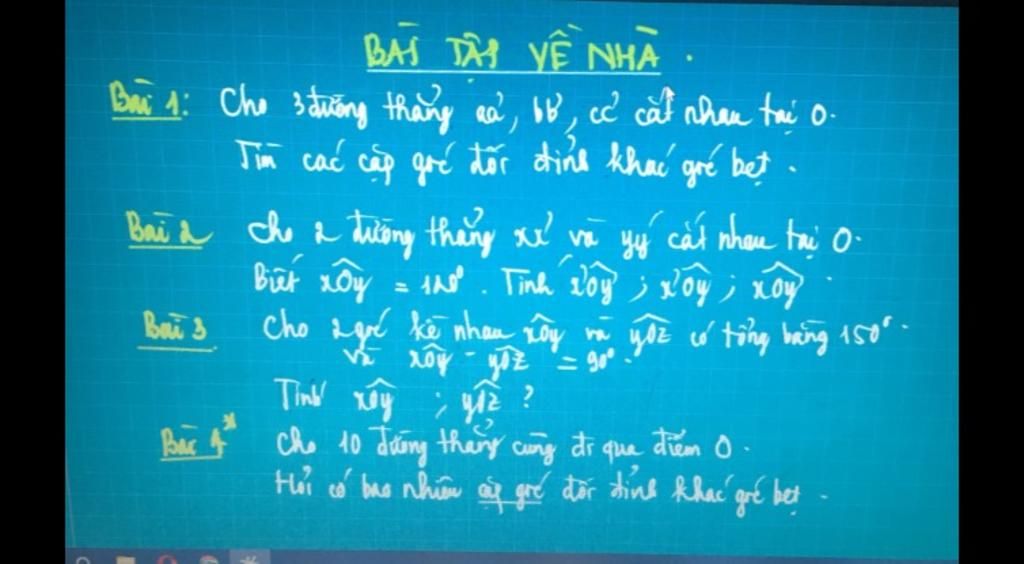 BÀI TẬP VỀ NHÀ.
Bài 1: Cho 3 đường thẳng aa', bb', cc' cắt nhau tại O.
Tìm các cặp góc đối đỉnh khác góc bẹt.
Bài 2 Cho 2 đường thẳng xx' và yy' cắt nhau tại O.
Biết xÔy = 120°. Tính x'Ôy' ; x'Ôy ; xÔy'
Bài 3 Cho 2 góc kề nhau xÔy và yÔz có tổng bằng 150°.
và xÔy - yÔz = 90°.
Tính xÔy ; yÔz ?
Bài 4* Cho 10 đường thẳng cùng đi qua điểm O.
Hỏi có bao nhiêu cặp góc đối đỉnh khác góc bẹt.